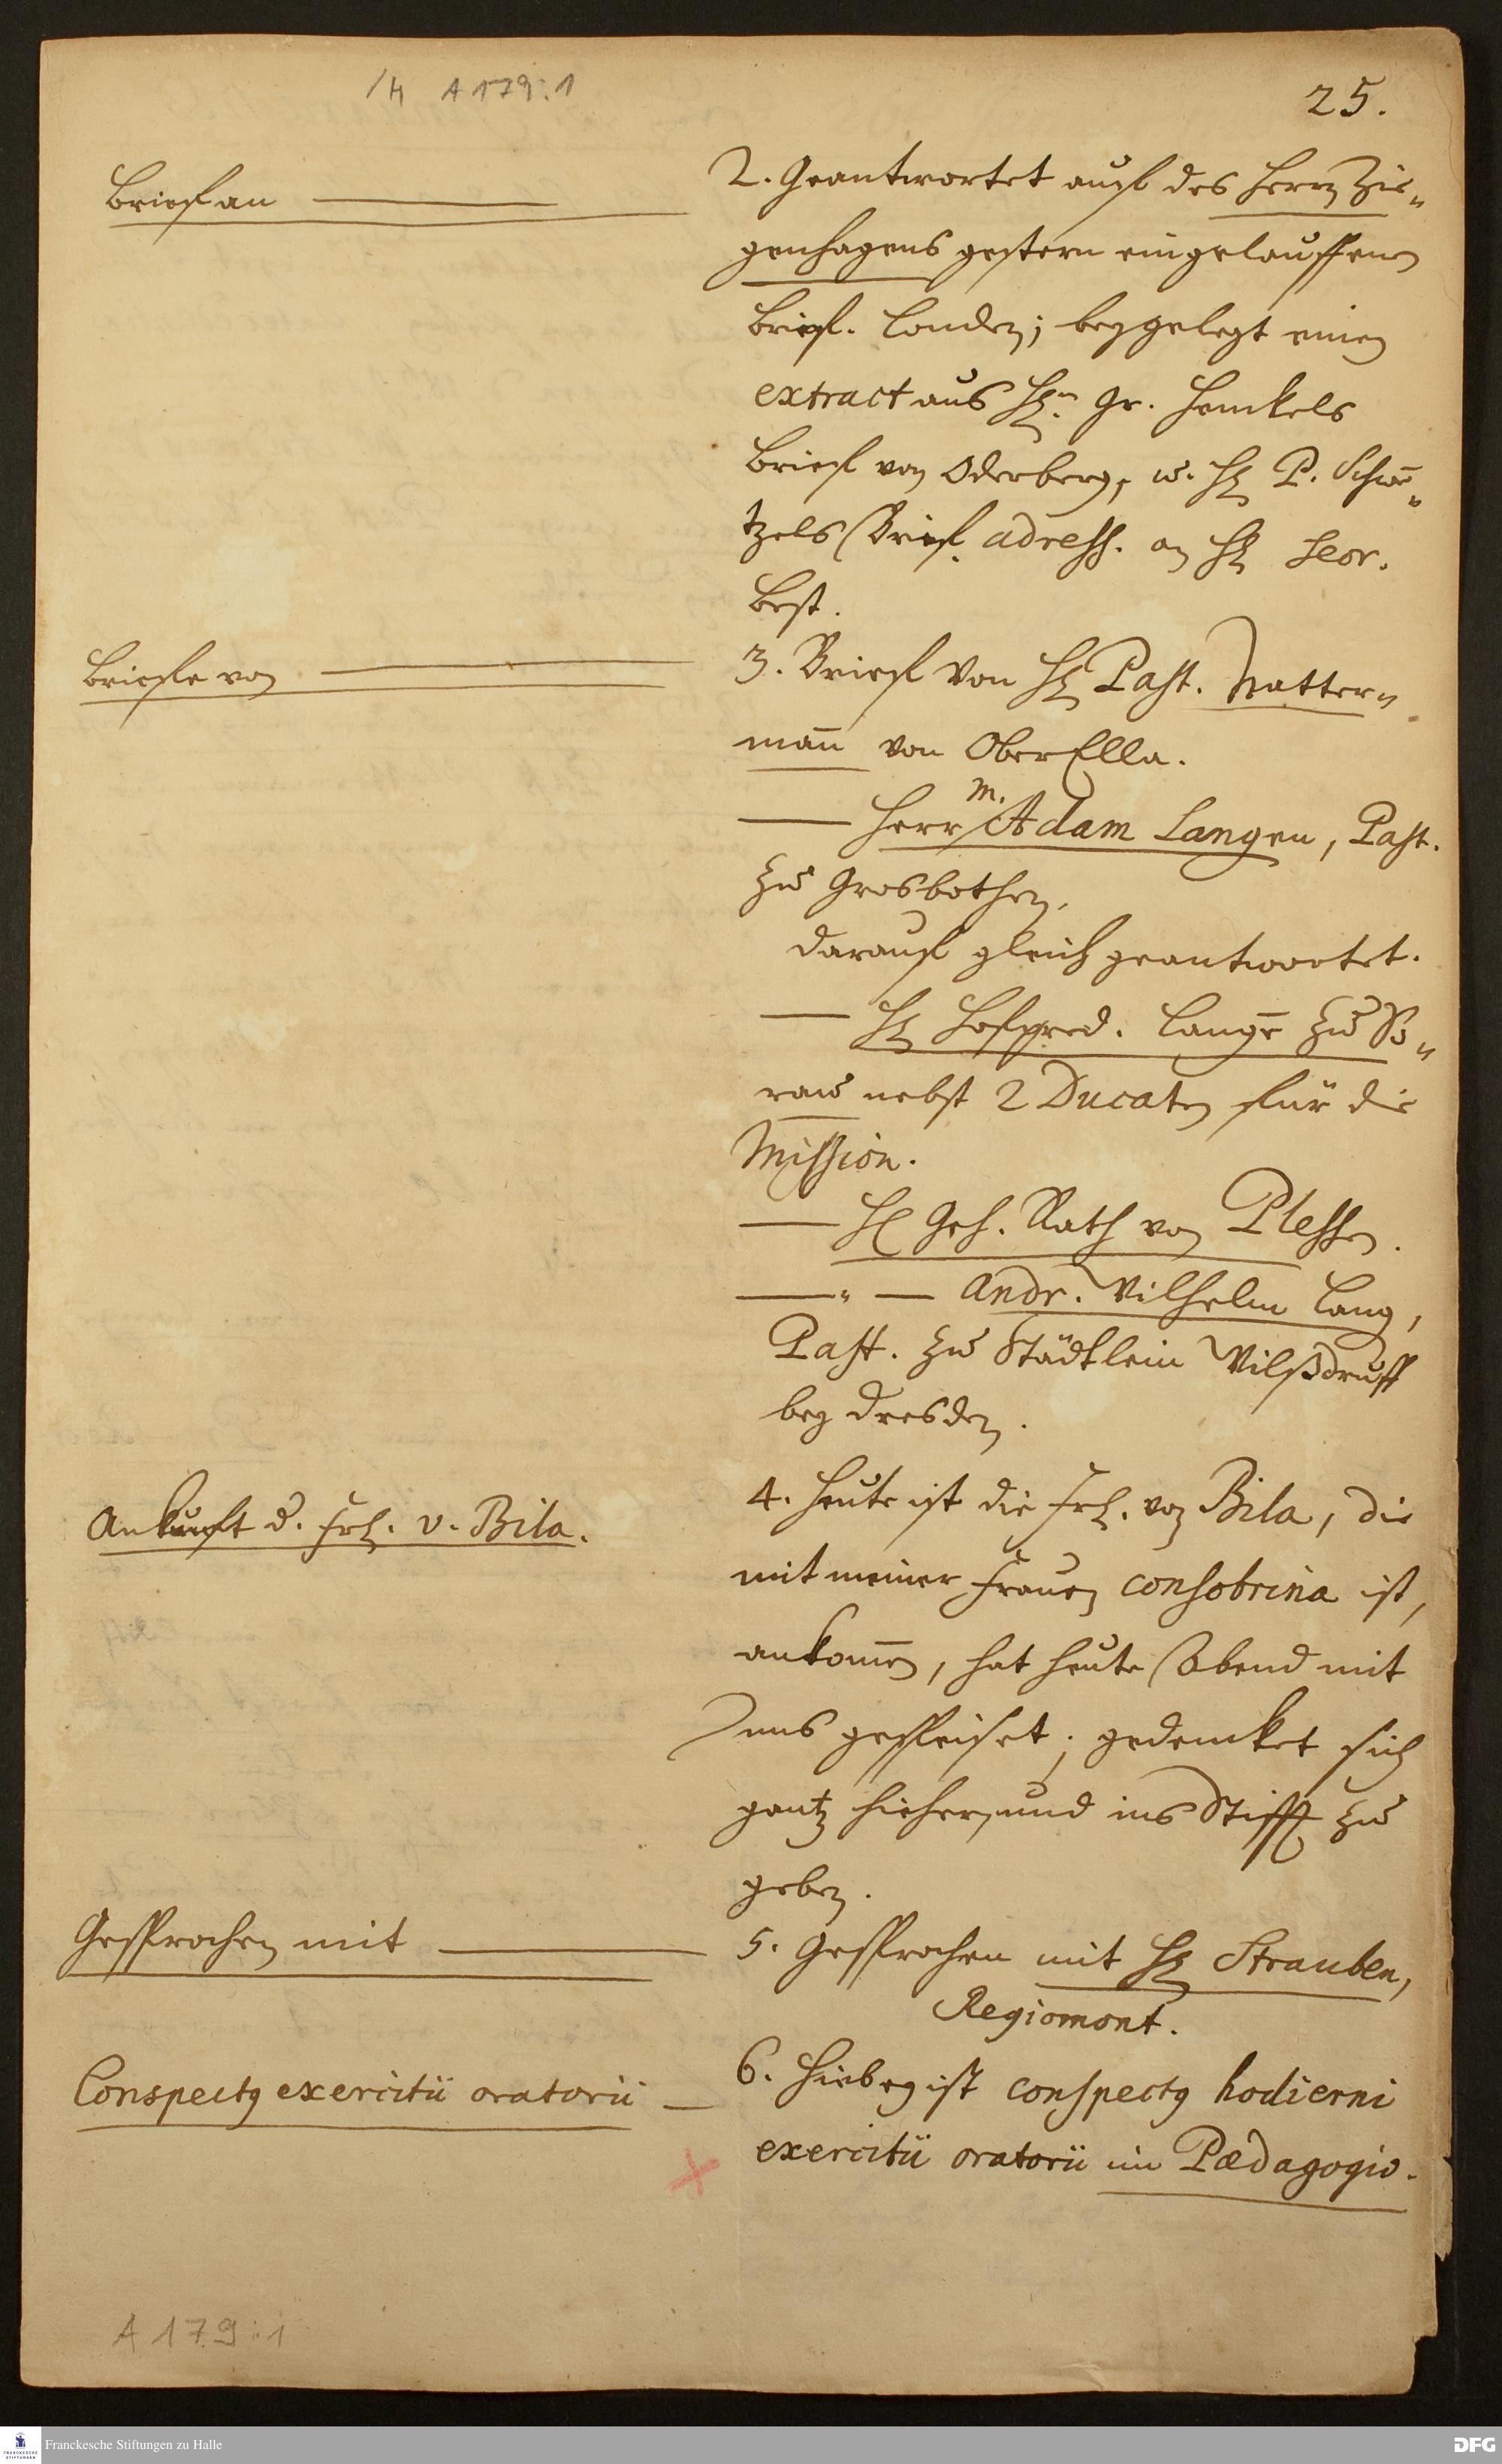 /H A 179:1
25.
Brief an
2. Geantwortet auf des Herrn Zie-
genhagens gestern eingelauffenen
Brief. London; beygelegt einen
extract aus Hn. Gr. Henckels
Brief von Oderberg, u. H. P.
tzels Brief adress. an H.
Best.
Briefe von
3. Brief von H. Past. Natter-
mañ von OberElla.
Herr M. Adam Langen, Past.
zu Grosbothen,
darauf gleich geantwortet.
H. Hofpred. Lange zu So-
rau nebst 2 Ducaten für die
Mission.
H. Geh. Rath von Plessen.
" Andr. Wilhelm Lang,
Past. zu Städtlein Wilßdruff
bey Dresden.
Ankunft d. Frl. v. Bila.
4. Heute ist die Frl. von Bila, die
mit meiner Frauen consobrina ist,
ankom̄en, hat heute Abend mit
uns gespeiset; gedencket sich
gantz hieher, und ins Stifft zu
geben.
Gesprochen mit
5. Gesprochen mit H. Strauben,
Regiomont.
Conspectq exercitii oratorii
6. Hiebey ist conspectq hodierni
exercitii oratorii im Pædagogio.
A 179:1
FRANCKESCHE STIFTUNGEN
Franckesche Stiftungen zu Halle
DFG